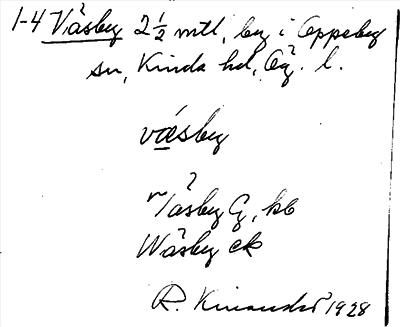 1-4 Våsby 2½ mtl, by i Oppeby
sn, Kinda hd, Ög. l.
våsby
Våsby G, kb
Wåsby ek
R. Kinander 1928